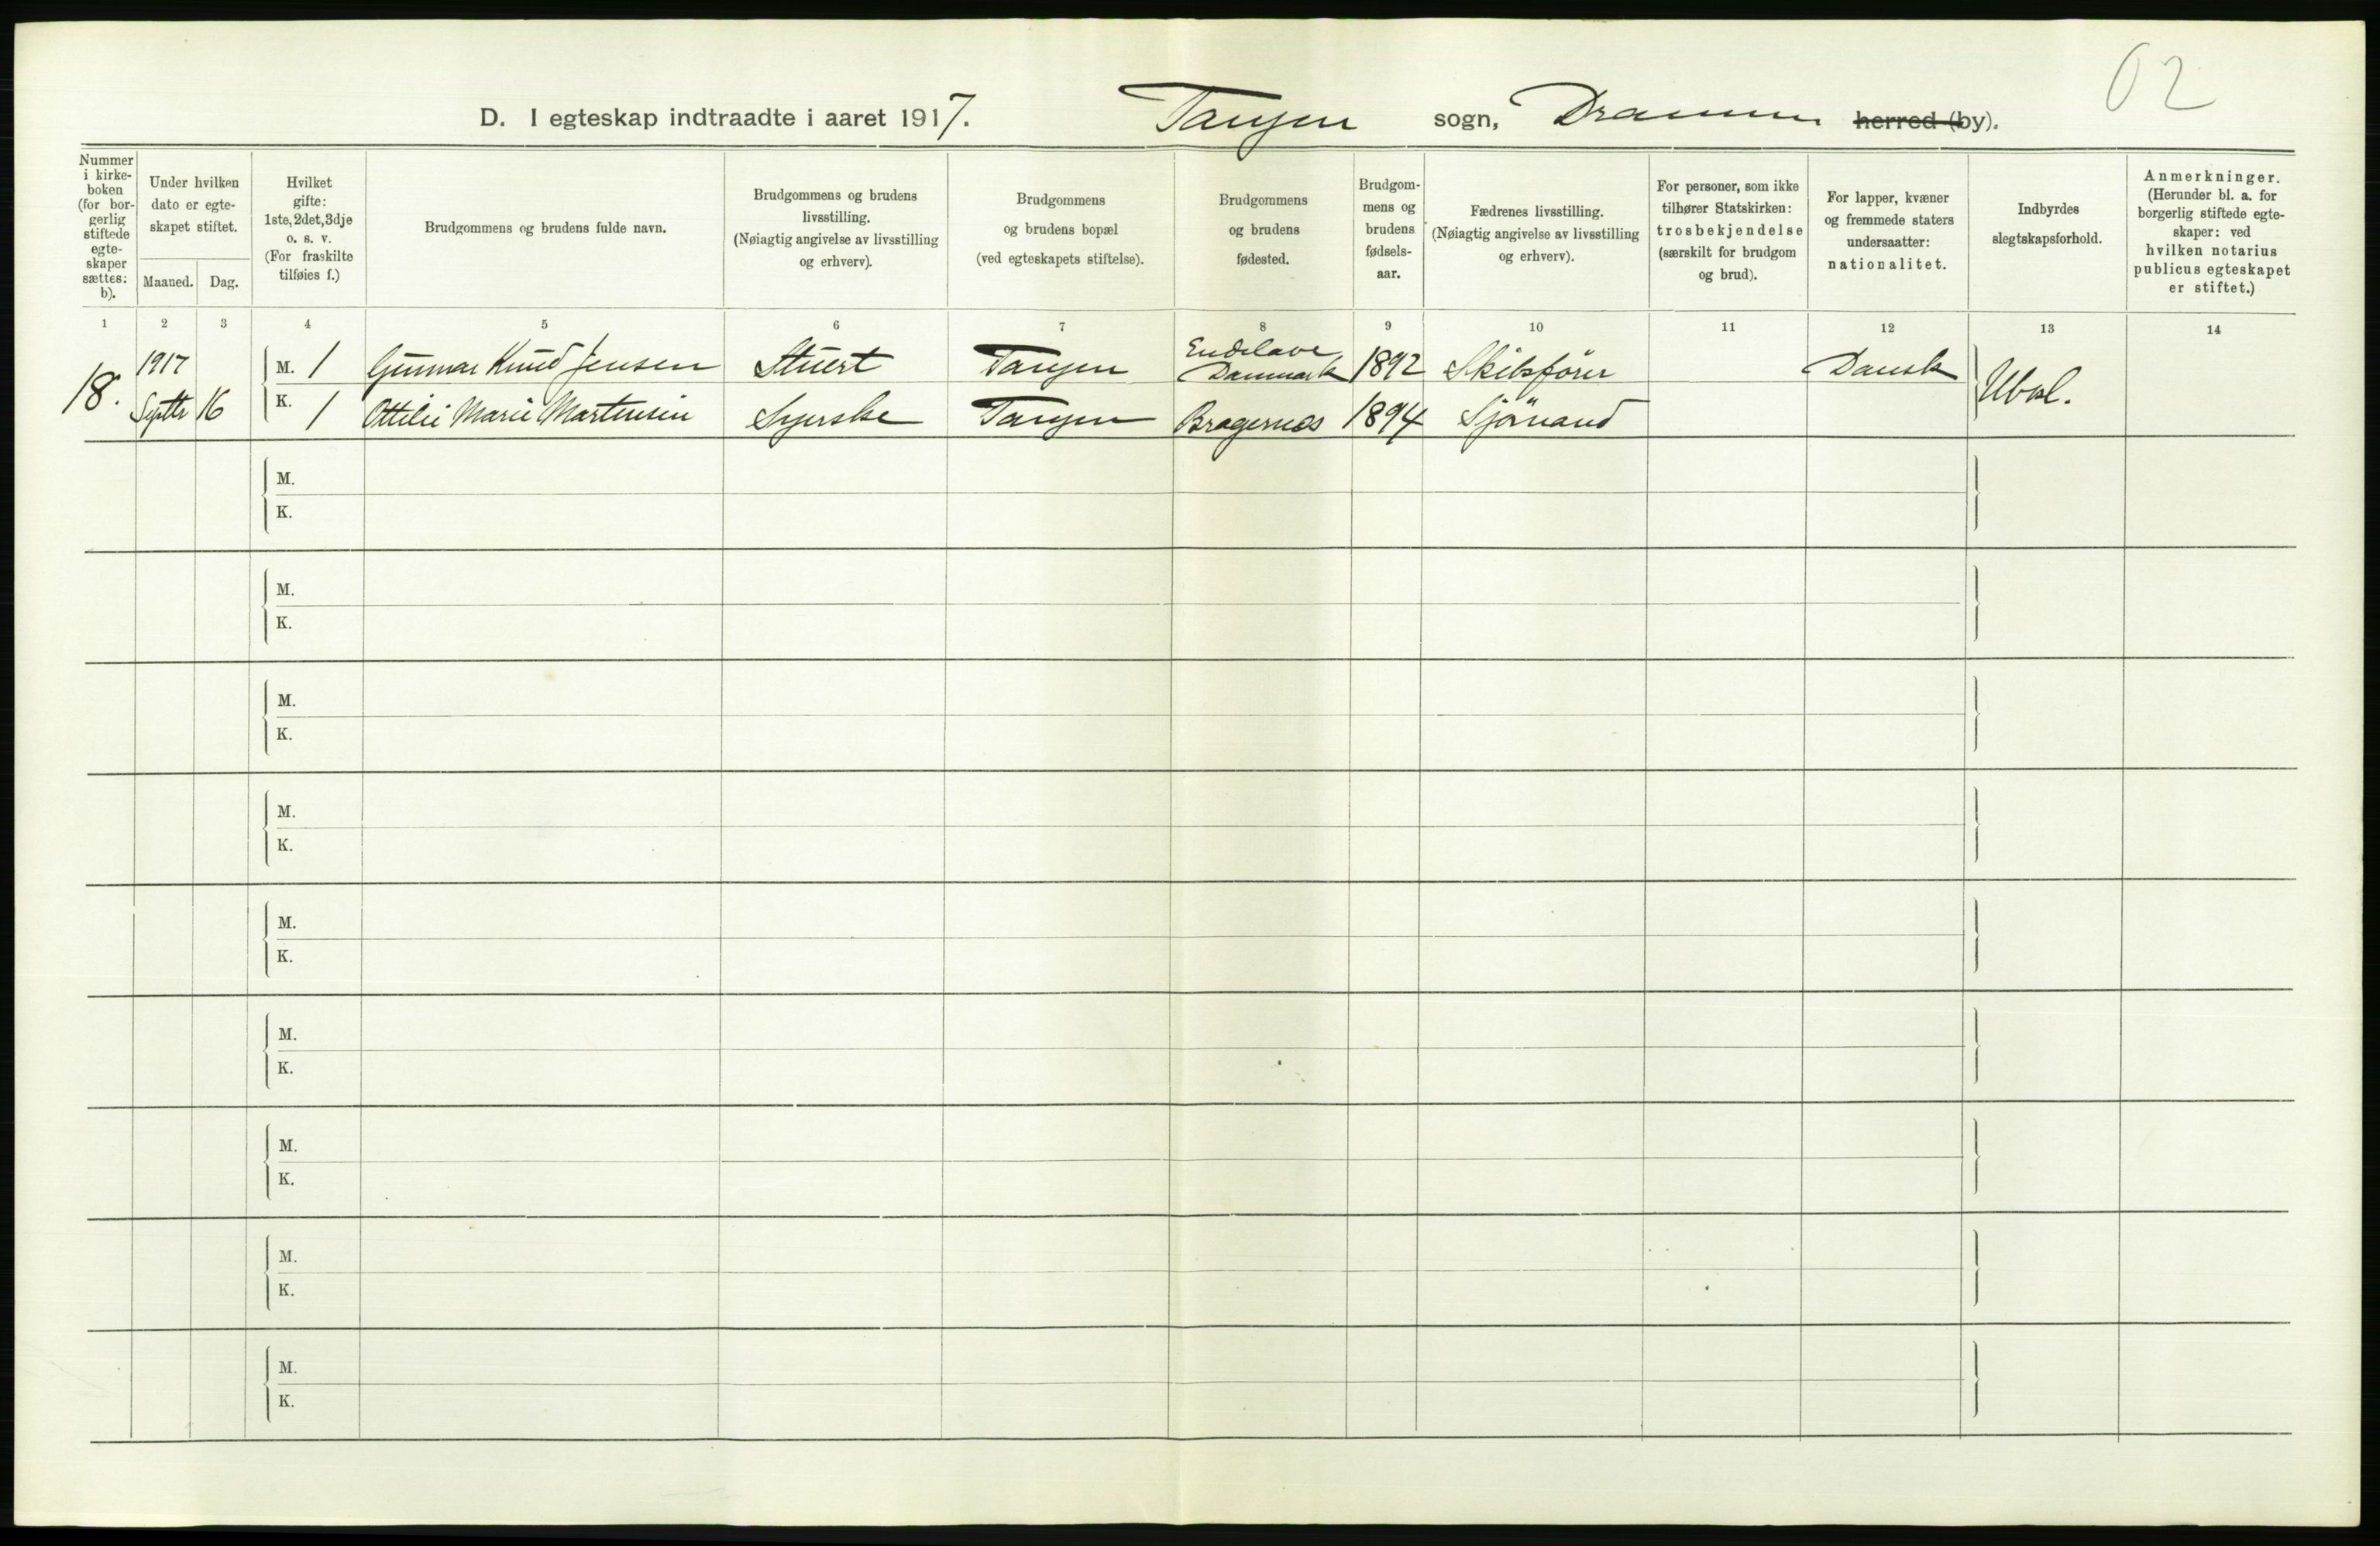 02
D. I egteskap indtraadte i aaret 1917. Tangen sogn, Drammen herred (by).
Nummer i kirke- boken (for bor- gerlig stiftede egte- skaper sættes: b).
Under hvilken dato er egte- skapet stiftet.
Maaned. Dag.
Hvilket gifte: 1ste, 2det, 3dje o. s. v. (For fraskilte tilføies f.)
Brudgommens og brudens fulde navn.
Brudgommens og brudens livsstilling. (Nøiagtig angivelse av livsstilling og erhverv).
Brudgommens og brudens bopæl (ved egteskapets stiftelse).
Brudgommens og brudens fødested.
Brudgom- mens og brudens fødsels- aar.
Fædrenes livsstilling. (Nøiagtig angivelse av livsstilling og erhverv).
For personer, som ikke tilhører Statskirken: trosbekjendelse (særskilt for brudgom og brud).
For lapper, kvæner og fremmede staters undersaatter: nationalitet.
Indbyrdes slegtskapsforhold.
Anmerkninger. (Herunder bl. a. for borgerlig stiftede egte- skaper: ved hvilken notarius publicus egteskapet er stiftet.)
1 2 3 4 5 6 7 8 9 10 11 12 13 14
1917 M. 1 Gunnar Knud Jensen Stuert Tangen Endelave, Danmark 1892 Skibsfører Dansk
18. Septbr 16 K. 1 Ottilie Marie Martensen Syerske Tangen Bragernes 1894 Sjömand Ubsl.
M.
K.
M.
K.
M.
K.
M.
K.
M.
K.
M.
K.
M.
K.
M.
K.
M.
K.